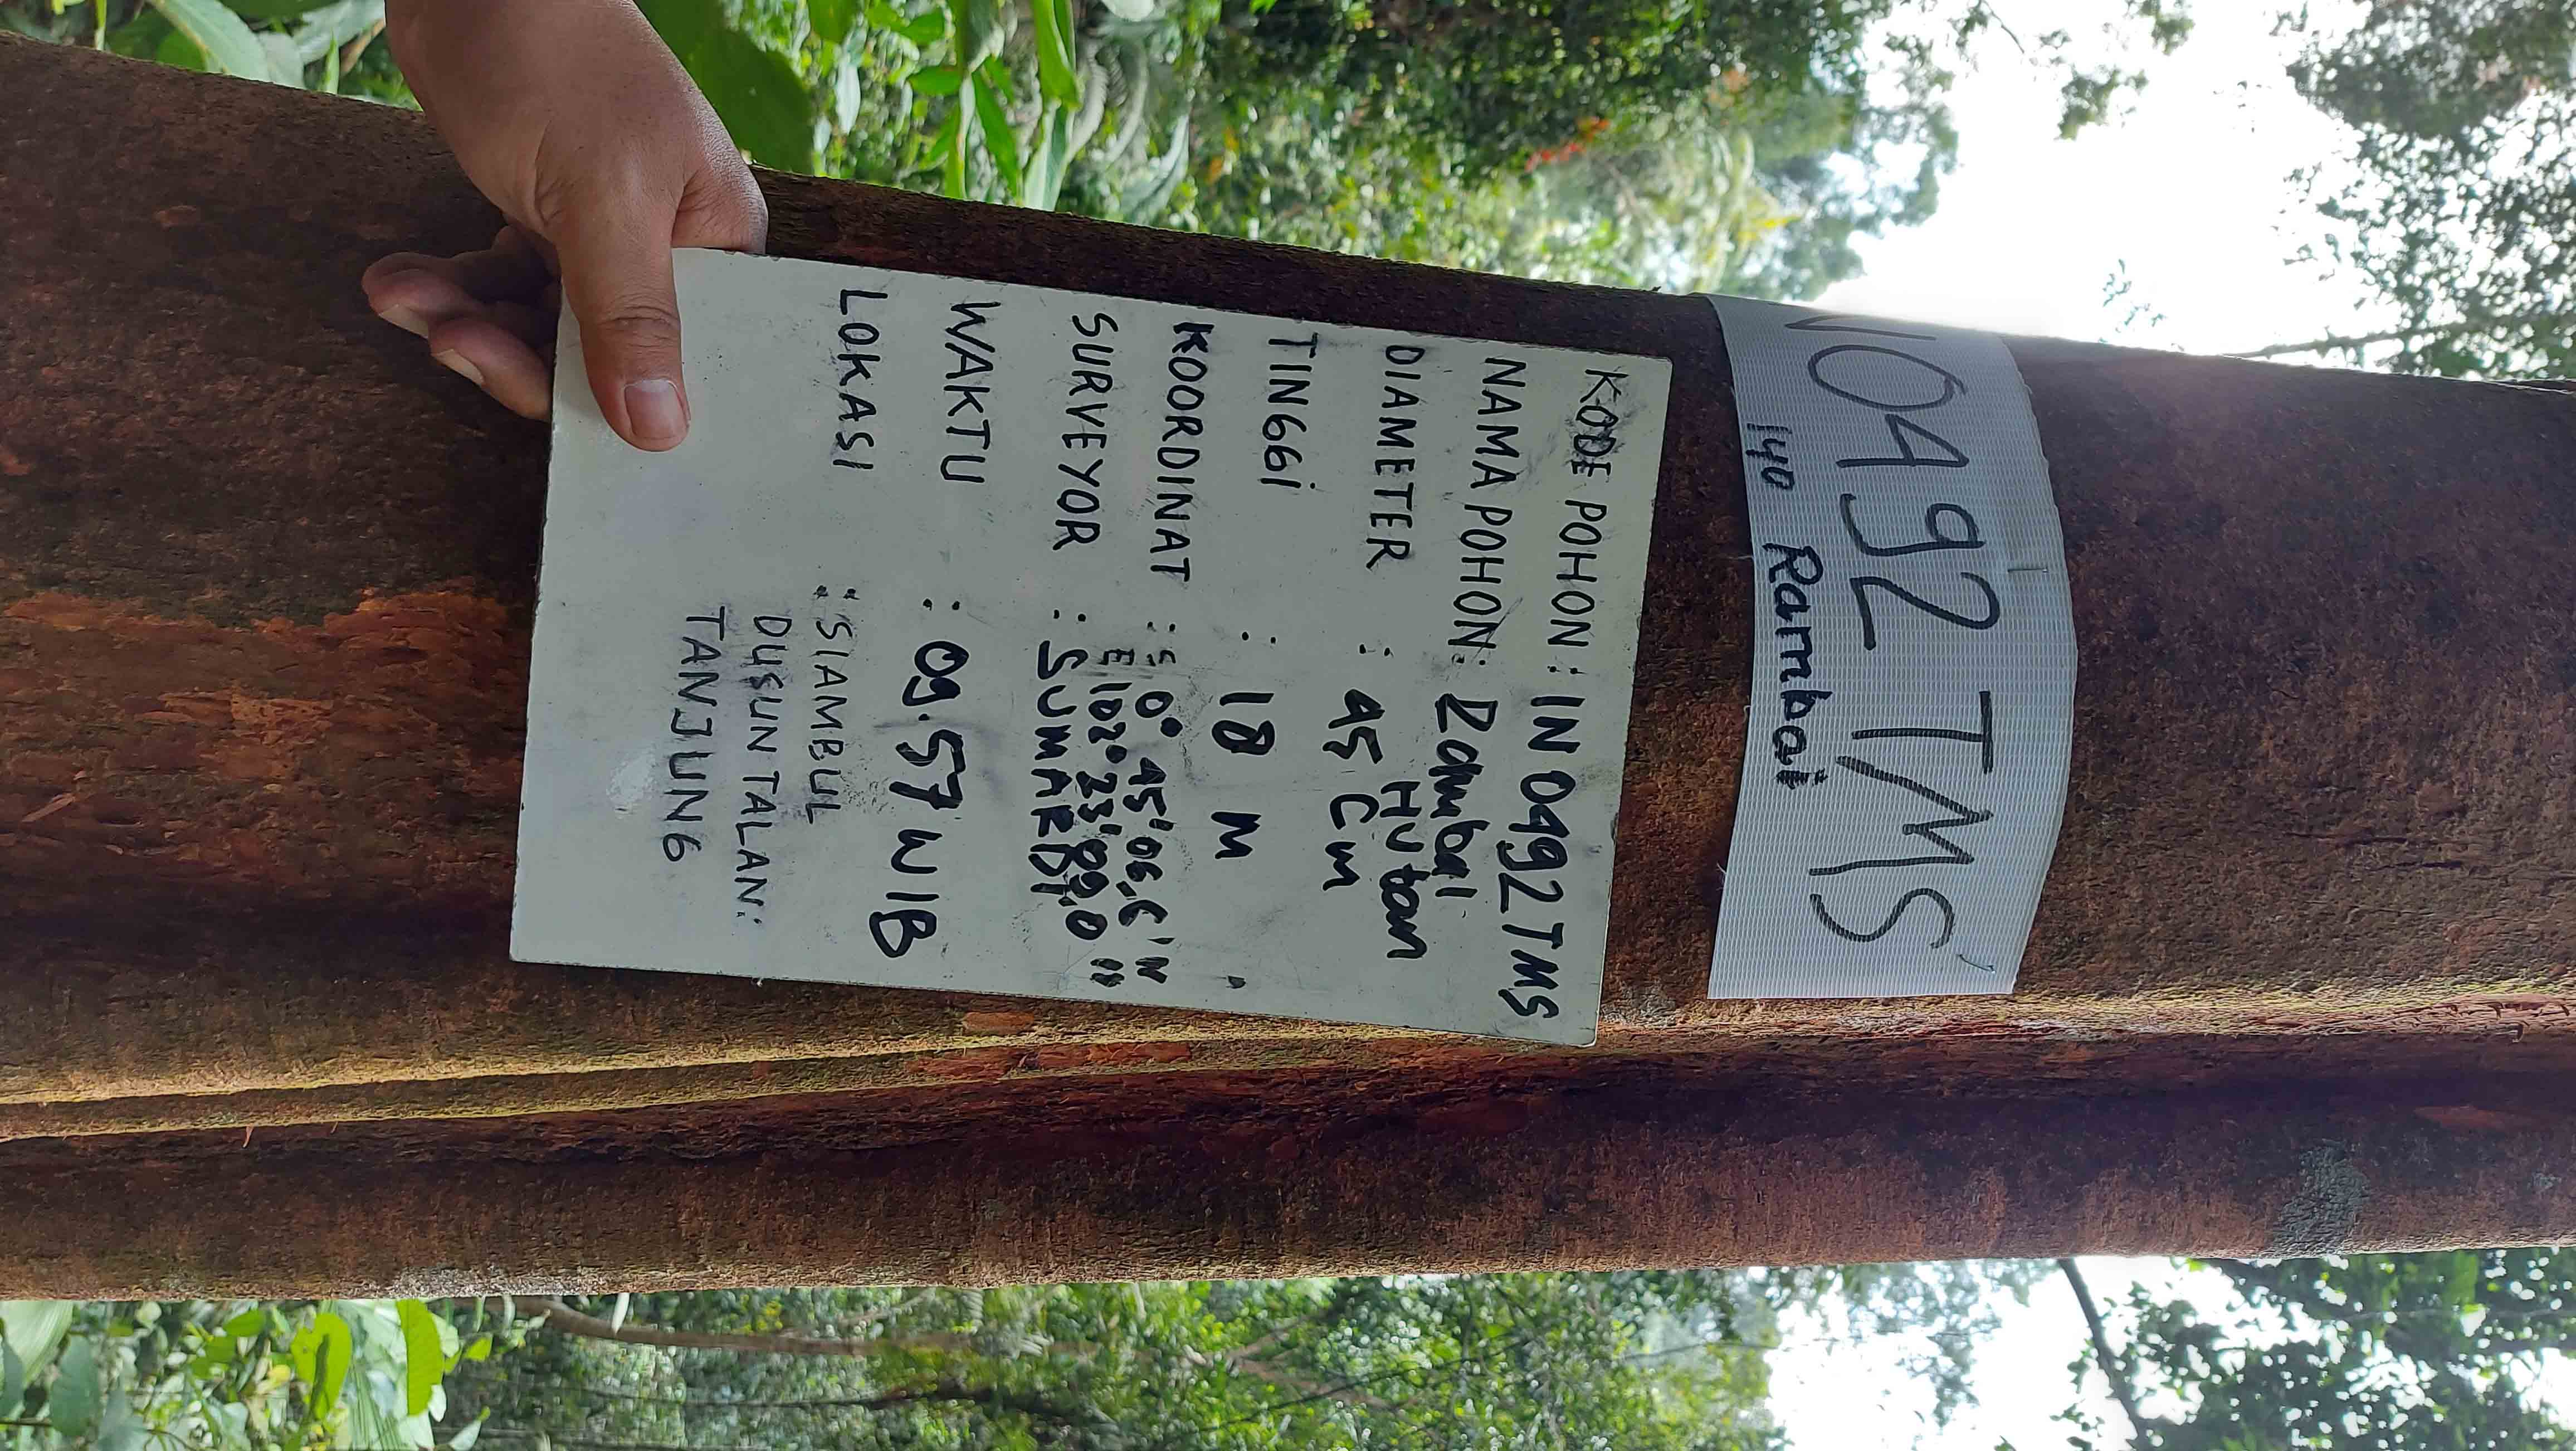 N0492 TMS
140 Rambai
KODE POHON : IN 0492 TMS
NAMA POHON : Rambai
Hutan
DIAMETER : 45 Cm
TINGGi : 18 M
KOORDINAT : S 0° 45' 06,6 "
E 102° 23' 09,0 "
SURVEYOR : SUMARDI
WAKTU : 09.57 WIB
LOKASI : SIAMBUL
DUSUN TALAN:
TANJUNG